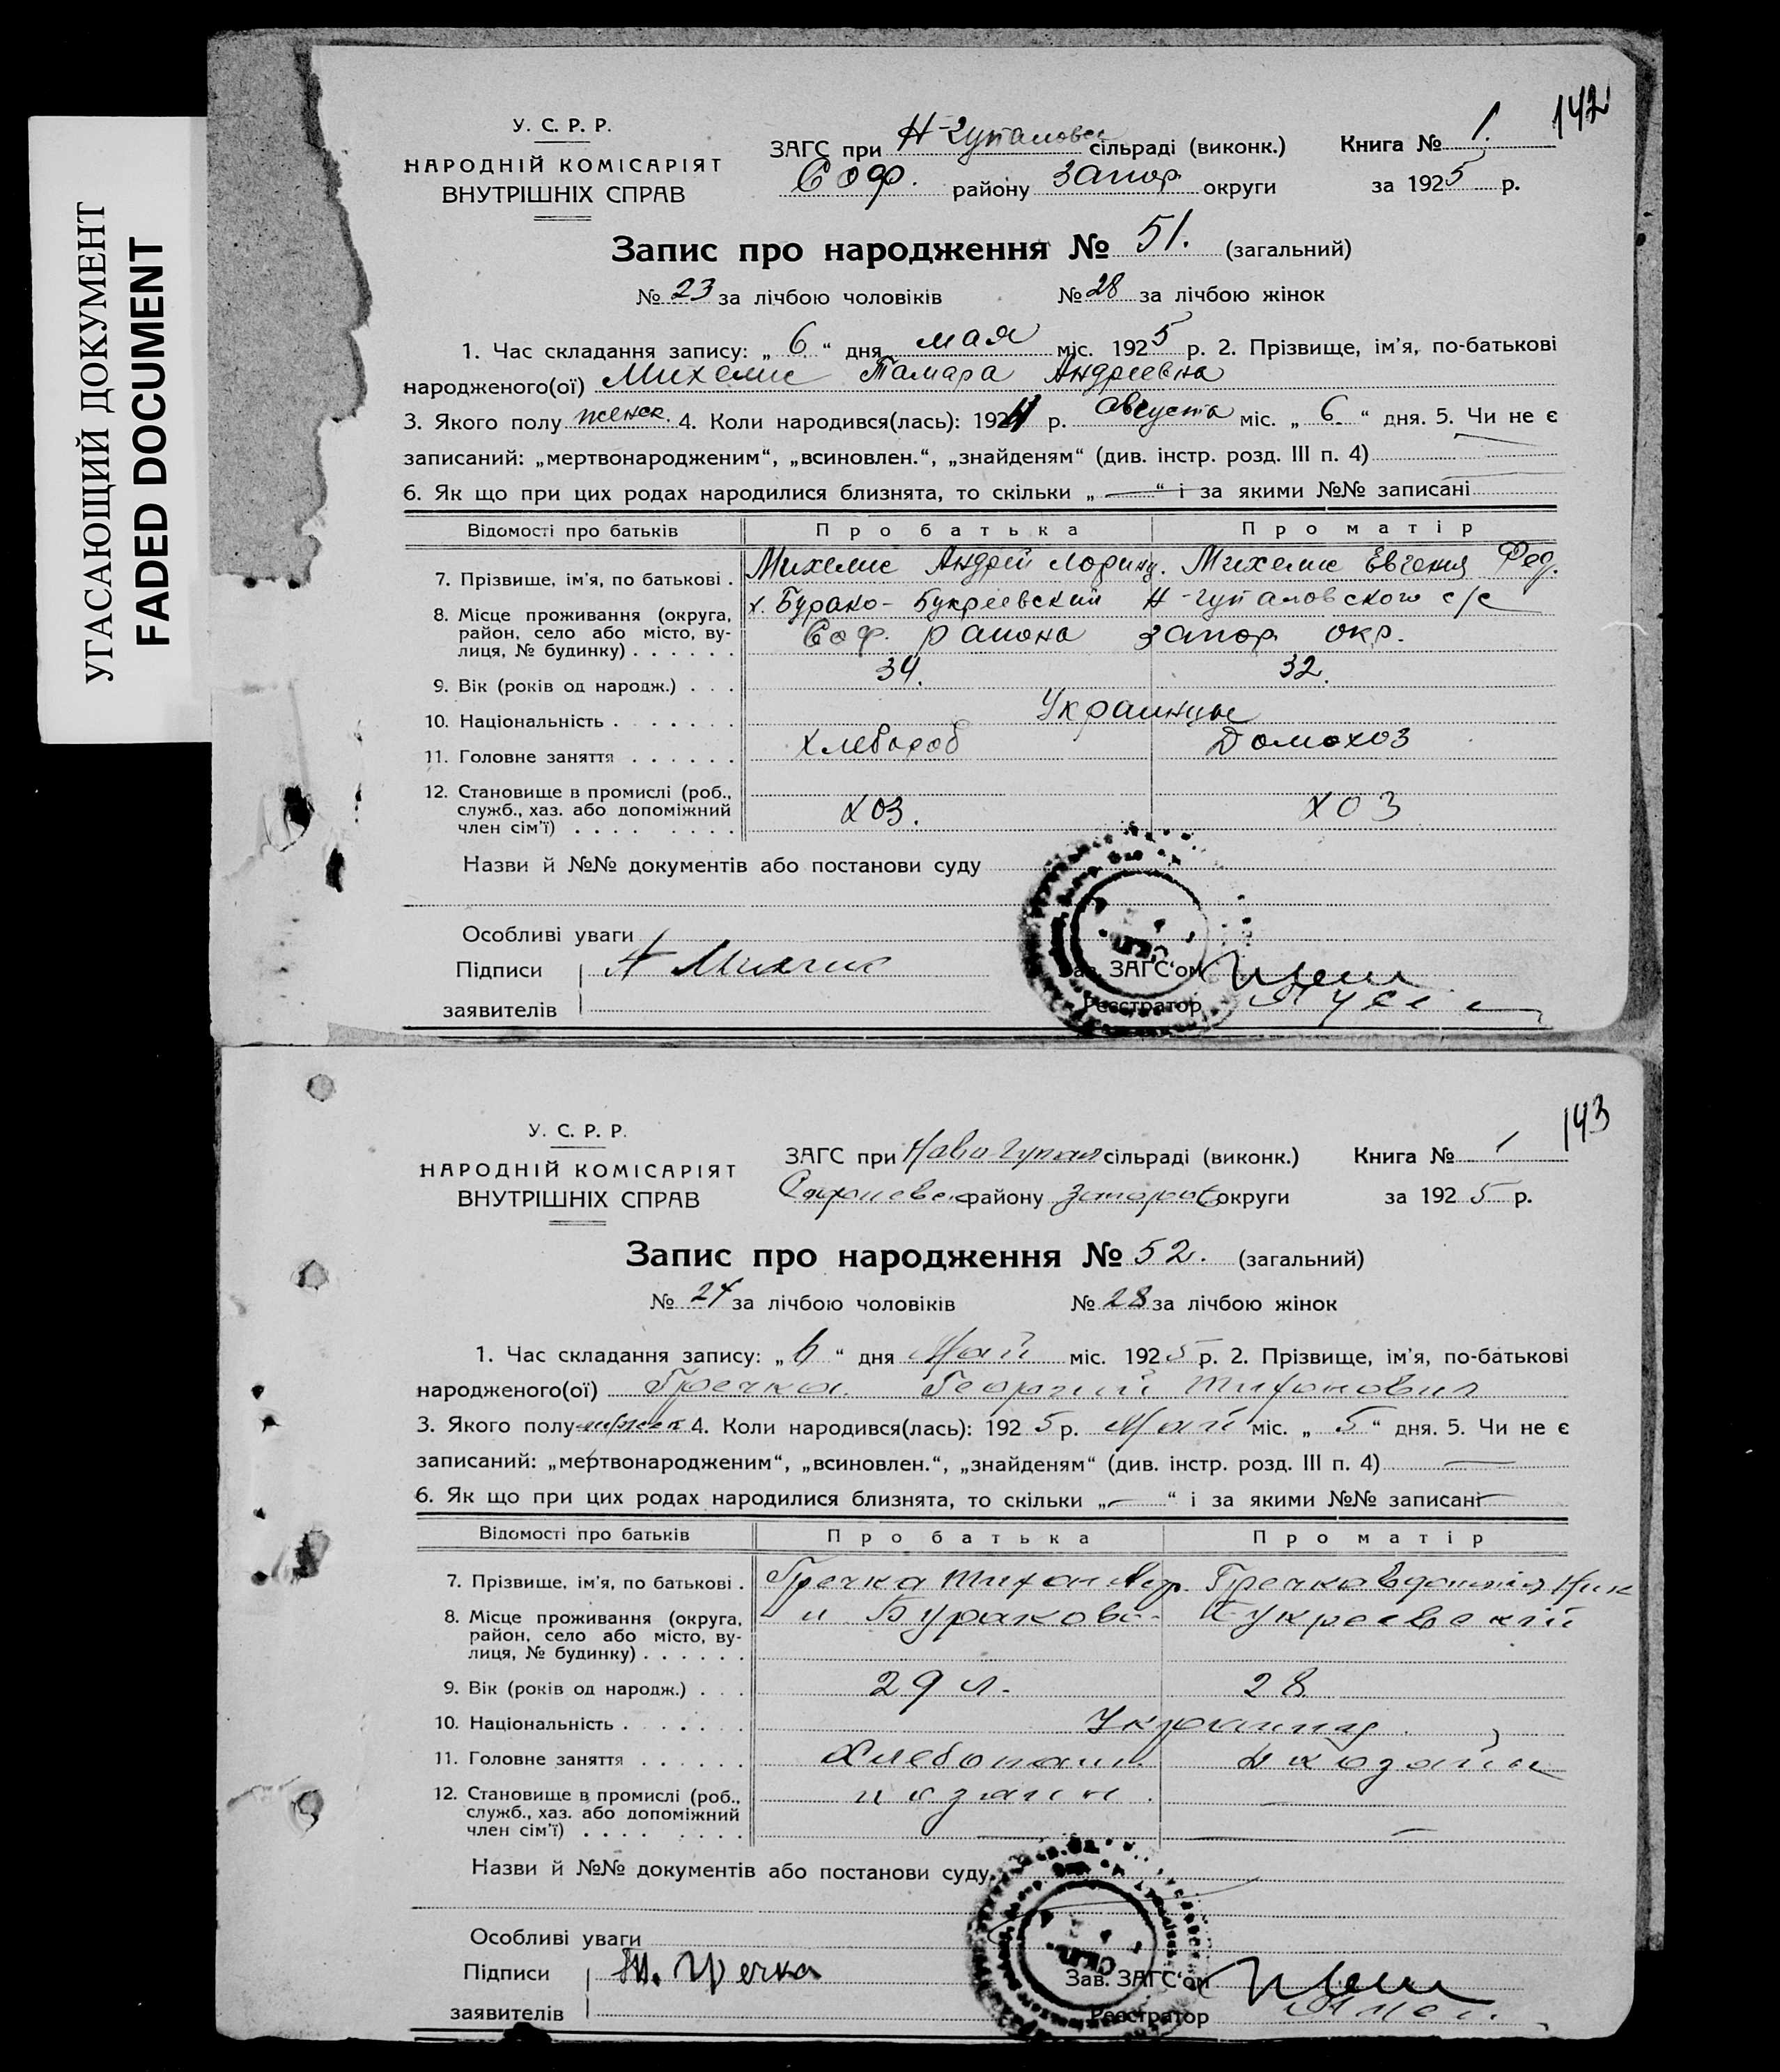 УГАСАЮЩИЙ ДОКУМЕНТ
FADED DOCUMENT
142
У. С. Р. Р.
НАРОДНІЙ КОМІСАРІЯТ
ВНУТРІШНІХ СПРАВ
ЗАГС при Н-Гупаловск сільраді (виконк.) Книга № 1.
Соф. району Запор округи за 1925 р.
Запис про народження № 51. (загальний)
№ 23 за лічбою чоловіків № 28 за лічбою жінок
1. Час складання запису: „ 6 “ дня мая міс. 1925 р. 2. Прізвище, ім’я, по-батькові
народженого(ої) Михелис Тамара Андреевна
3. Якого полу женск. 4. Коли народився(лась): 1924 р. августа міс. „ 6 “ дня. 5. Чи не є
записаний: „мертвонародженим“, „всиновлен.“, „знайденям“ (див. інстр. розд. III п. 4)
6. Як що при цих родах народилися близнята, то скільки „ — “ і за якими №№ записані
Відомості про батьків Про батька Про матір
7. Прізвище, ім’я, по батькові . Михелис Андрей Михелис Евгения Фед.
8. Місце проживання (округа, х. Бурако-Букреевский Н-Гупаловского с/с
район, село або місто, ву- Соф. района Запор окр.
лиця, № будинку) . . . . . .
9. Вік (років од народж.) . . . 34. 32.
10. Національність . . . . . . . Украинцы
11. Головне заняття . . . . . . Хлебороб Домохоз
12. Становище в промислі (роб.,
служб., хаз. або допоміжний хоз. хоз
член сім’ї) . . . . . . . .
Назви й №№ документів або постанови суду
Особливі уваги
Підписи А Михелис Зав. ЗАГС‘ом
заявителів Реєстратор
143
У. С. Р. Р.
НАРОДНІЙ КОМІСАРІЯТ
ВНУТРІШНІХ СПРАВ
ЗАГС при Ново-Гупал сільраді (виконк.) Книга № 1
Софиевск району Запорож округи за 1925 р.
Запис про народження № 52. (загальний)
№ 24 за лічбою чоловіків № 28 за лічбою жінок
1. Час складання запису: „ 6 “ дня Май міс. 1925 р. 2. Прізвище, ім’я, по-батькові
народженого(ої) Гречка Георгий Тихонович
3. Якого полу 4. Коли народився(лась): 1925 р. Май міс. „ 5 “ дня. 5. Чи не є
записаний: „мертвонародженим“, „всиновлен.“, „знайденям“ (див. інстр. розд. III п. 4) —
6. Як що при цих родах народилися близнята, то скільки „ — “ і за якими №№ записані —
Відомості про батьків Про батька Про матір
7. Прізвище, ім’я, по батькові . Гречка Тихон Гречка Ник
8. Місце проживання (округа, Бураково- Букреевский
район, село або місто, ву-
лиця, № будинку) . . . . . .
9. Вік (років од народж.) . . . 29 л. 28
10. Національність . . . . . . . Украинцы
11. Головне заняття . . . . . . Хлебопаш.
12. Становище в промислі (роб.,
служб., хаз. або допоміжний
член сім’ї) . . . . . . . .
Назви й №№ документів або постанови суду
Особливі уваги
Підписи Т. Гречка Зав. ЗАГС‘ом
заявителів Реєстратор